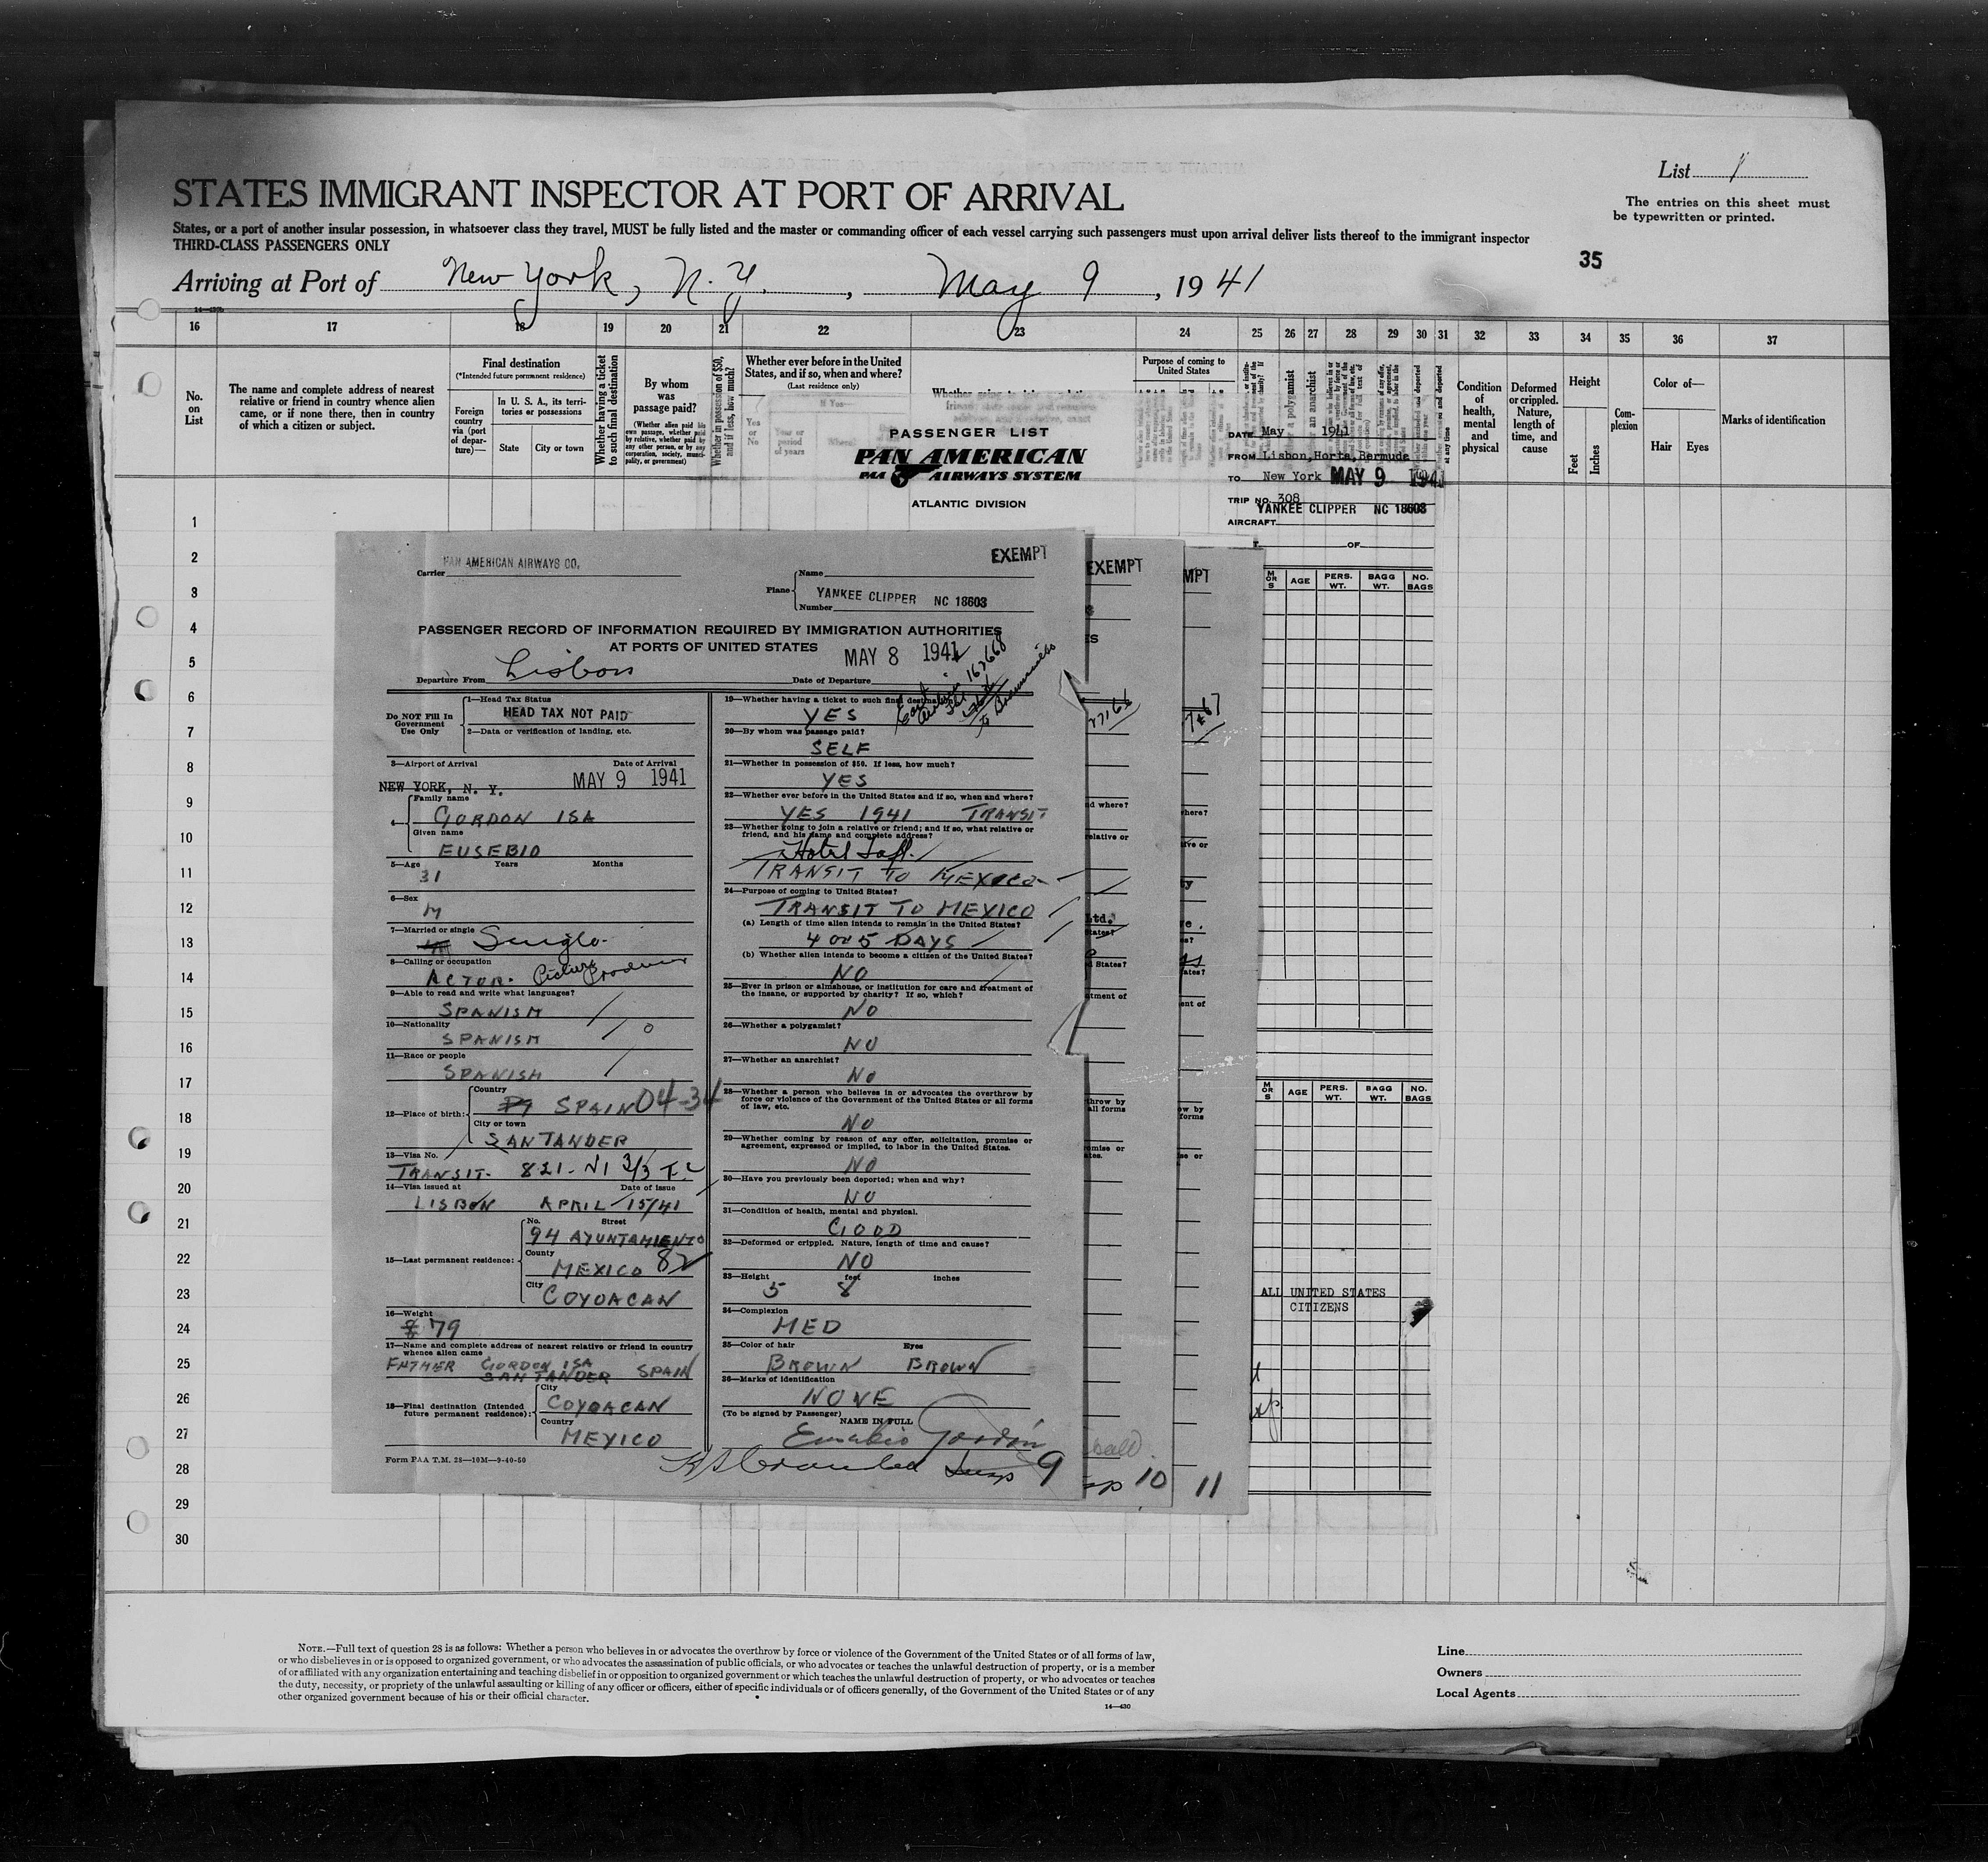 List 1
The entries on this sheet must
be typewritten or printed.
STATES IMMIGRANT INSPECTOR AT PORT OF ARRIVAL
States, or a port of another insular possession, in whatsoever class they travel, MUST be fully listed and the master or commanding officer of each vessel carrying such passengers must upon arrival deliver lists thereof to the immigrant inspector
THIRD-CLASS PASSENGERS ONLY
35
Arriving at Port of New York, N.Y., May 9, 1941
16 17 18 19 20 21 22 23 24 25 26 27 28 29 30 31 32 33 34 35 36 37
No. on List
The name and complete address of nearest
relative or friend in country whence alien
came, or if none there, then in country
of which a citizen or subject.
Final destination
(*Intended future permanent residence)
Foreign
country
via (port
of depar-
ture)—
In U. S. A., its terri-
tories or possessions
State
City or town
Whether having a ticket
to such final destination
By whom
was
passage paid?
(Whether alien paid his
own passage, whether paid
by relative, whether paid by
any other person, or by any
corporation, society, munici-
pality, or government)
Whether in possession of $50,
and if less, how much?
Whether ever before in the United
States, and if so, when and where?
(Last residence only)
If Yes—
Yes
or
No
Year or
period
of years
Where?
Purpose of coming to
United States
a polygamist
an anarchist
Condition
of
health,
mental
and
physical
Deformed
or crippled.
Nature,
length of
time, and
cause
Height
Feet
Inches
Com-
plexion
Color of—
Hair
Eyes
Marks of identification
PASSENGER LIST
PAN AMERICAN
PAA AIRWAYS SYSTEM
ATLANTIC DIVISION
DATE May 1941
FROM Lisbon, Horta, Bermuda
TO New York MAY 9 1941
TRIP NO. 308
AIRCRAFT YANKEE CLIPPER NC 18603
OF
M OR S AGE PERS. WT. BAGG WT. NO. BAGS
M OR S AGE PERS. WT. BAGG WT. NO. BAGS
ALL UNITED STATES
CITIZENS
1
2
3
4
5
6
7
8
9
10
11
12
13
14
15
16
17
18
19
20
21
22
23
24
25
26
27
28
29
30
EXEMPT
Carrier PAN AMERICAN AIRWAYS CO.
Plane Name
Number YANKEE CLIPPER NC 18603
PASSENGER RECORD OF INFORMATION REQUIRED BY IMMIGRATION AUTHORITIES
AT PORTS OF UNITED STATES
Departure From Lisbon Date of Departure MAY 8 1941
Do NOT Fill In
Government
Use Only
1—Head Tax Status
HEAD TAX NOT PAID
2—Data or verification of landing, etc.
3—Airport of Arrival Date of Arrival
NEW YORK, N. Y. MAY 9 1941
4— Family name
GORDON ISA
Given name
EUSEBIO
5—Age Years Months
31
6—Sex
M
7—Married or single
Single
8—Calling or occupation
ACTOR. Picture Producer
9—Able to read and write what languages?
SPANISH
10—Nationality
SPANISH
11—Race or people
SPANISH
12—Place of birth: Country
SPAIN 04-34
City or town
SANTANDER
13—Visa No.
TRANSIT. 821
14—Visa issued at Date of issue
LISBON APRIL 15/41
15—Last permanent residence: No. Street
94 AYUNTAMIENTO
County
MEXICO 82
City
COYOACAN
16—Weight
79
17—Name and complete address of nearest relative or friend in country
whence alien came
FATHER GORDON ISA
SANTANDER SPAIN
18—Final destination (Intended
future permanent residence): City
COYOACAN
Country
MEXICO
Form PAA T.M. 28—10M—9-40-50
19—Whether having a ticket to such final destination?
YES
20—By whom was passage paid?
SELF
21—Whether in possession of $50. If less, how much?
YES
22—Whether ever before in the United States and if so, when and where?
YES 1941 TRANSIT
23—Whether going to join a relative or friend; and if so, what relative or
friend, and his name and complete address?
Hotel Taft.
TRANSIT TO MEXICO
24—Purpose of coming to United States?
TRANSIT TO MEXICO
(a) Length of time alien intends to remain in the United States?
4 or 5 DAYS
(b) Whether alien intends to become a citizen of the United States?
NO
25—Ever in prison or almshouse, or institution for care and treatment of
the insane, or supported by charity? If so, which?
NO
26—Whether a polygamist?
NO
27—Whether an anarchist?
NO
28—Whether a person who believes in or advocates the overthrow by
force or violence of the Government of the United States or all forms
of law, etc.
NO
29—Whether coming by reason of any offer, solicitation, promise or
agreement, expressed or implied, to labor in the United States.
NO
30—Have you previously been deported; when and why?
NO
31—Condition of health, mental and physical.
GOOD
32—Deformed or crippled. Nature, length of time and cause?
NO
33—Height feet inches
5 8
34—Complexion
MED
35—Color of hair Eyes
BROWN BROWN
36—Marks of identification
NONE
(To be signed by Passenger)
NAME IN FULL
Eusebio Gordón
9
EXEMPT
10
11
NOTE.—Full text of question 28 is as follows: Whether a person who believes in or advocates the overthrow by force or violence of the Government of the United States or of all forms of law,
or who disbelieves in or is opposed to organized government, or who advocates the assassination of public officials, or who advocates or teaches the unlawful destruction of property, or is a member
of or affiliated with any organization entertaining and teaching disbelief in or opposition to organized government or which teaches the unlawful destruction of property, or who advocates or teaches
the duty, necessity, or propriety of the unlawful assaulting or killing of any officer or officers, either of specific individuals or of officers generally, of the Government of the United States or of any
other organized government because of his or their official character.
14—430
Line
Owners
Local Agents